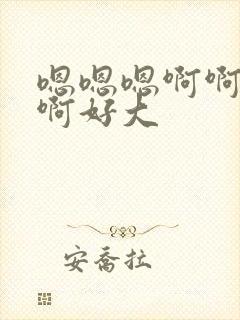 嗯嗯嗯啊啊
啊好大
安乔拉